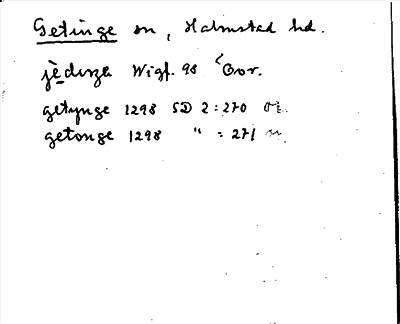 Getinge sn, Halmstad hd.
Wigf. 98
getynge 1298 SD 2:270
getonge 1298 " :271